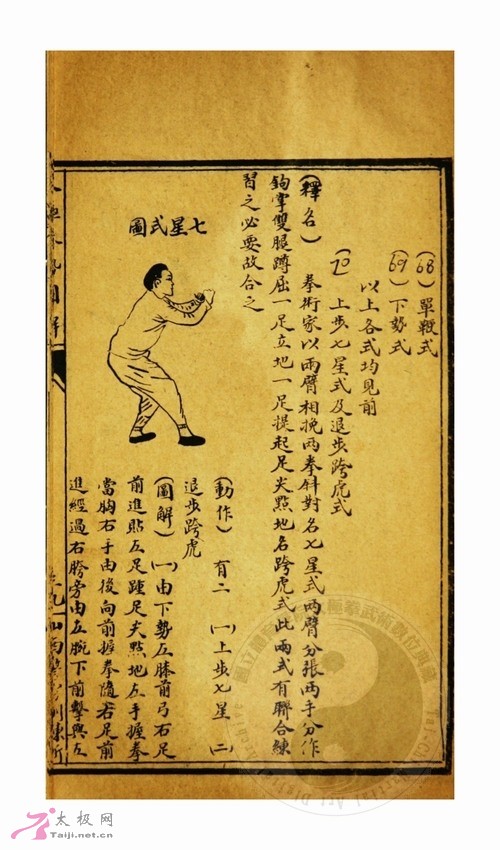 (68) 單鞭式
(69) 下勢式
以上各式均見前
(70) 上步七星式及退步跨虎式
(釋名) 拳術家以兩臂相挽兩拳斜對名七星式兩臂分張兩手分作
鈎掌雙腿蹲屈一足立地一足提起足尖點地名跨虎式此兩式有聯合練
習之必要故合之
七星式圖
(動作) 有二 (一)上步七星 (二)
退步跨虎
(圖解) (一)由下勢左膝前弓右足
前進貼左足踵足尖點地左手握拳
當胸右手由後向前握拳隨右足前
進經過右胯旁由左腕下前擊與左
勢圖解
太极网
Taiji.net.cn